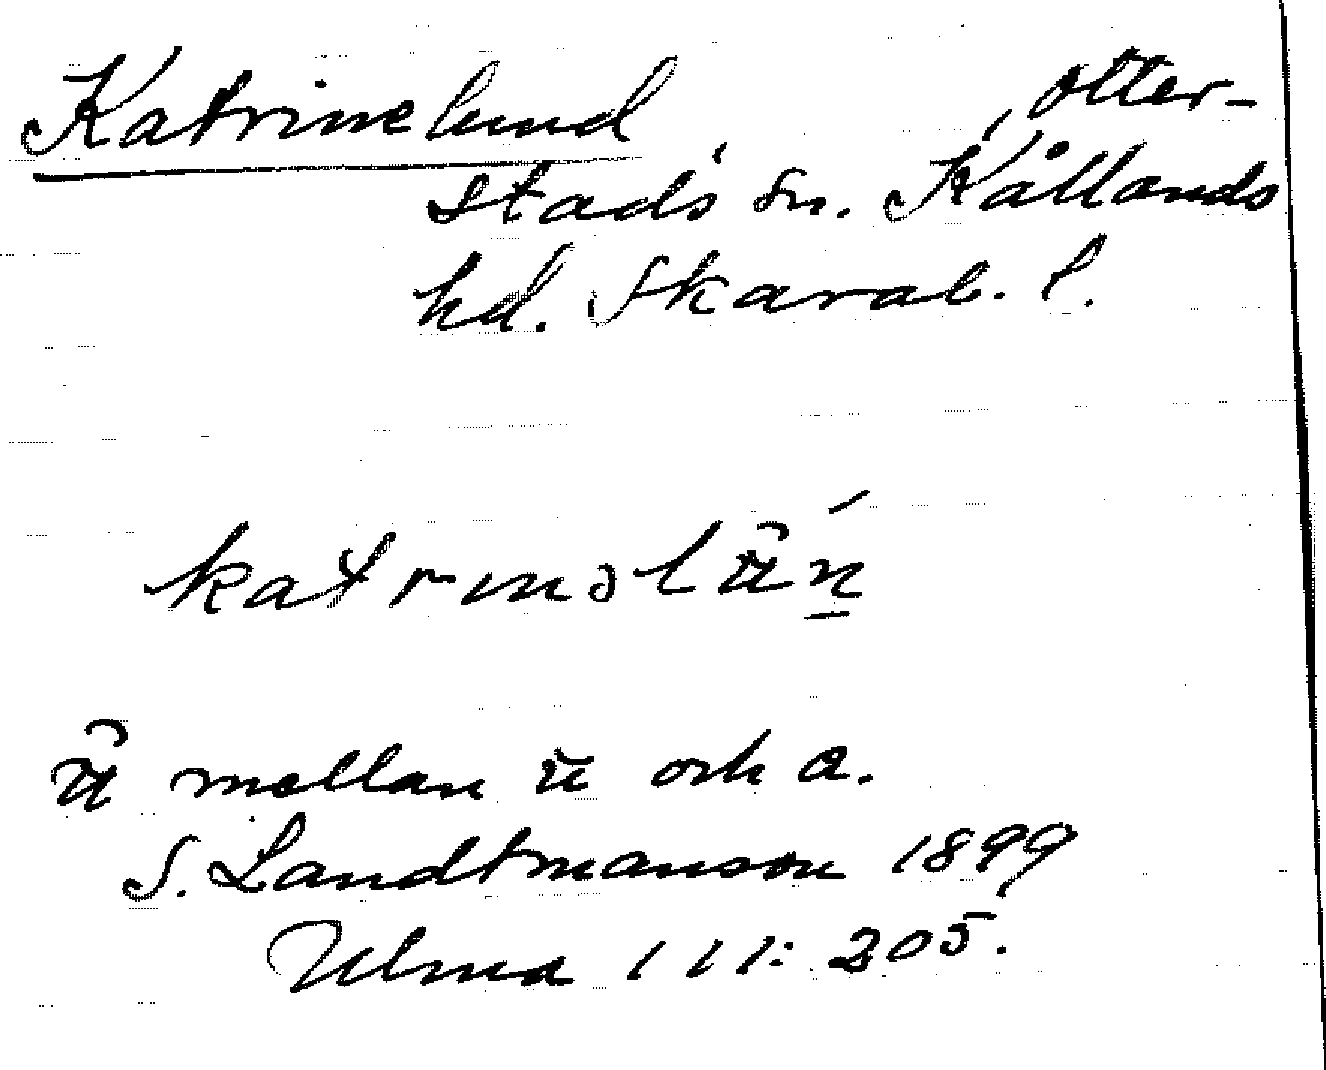 Katrinelund, Otter-
stads sn. Kållands
hd. Skarab. l.
katrinəlü̂ṉ́
ü̂ mellan ü och a.
S. Landtmanson 1899
Ulma 111: 205.